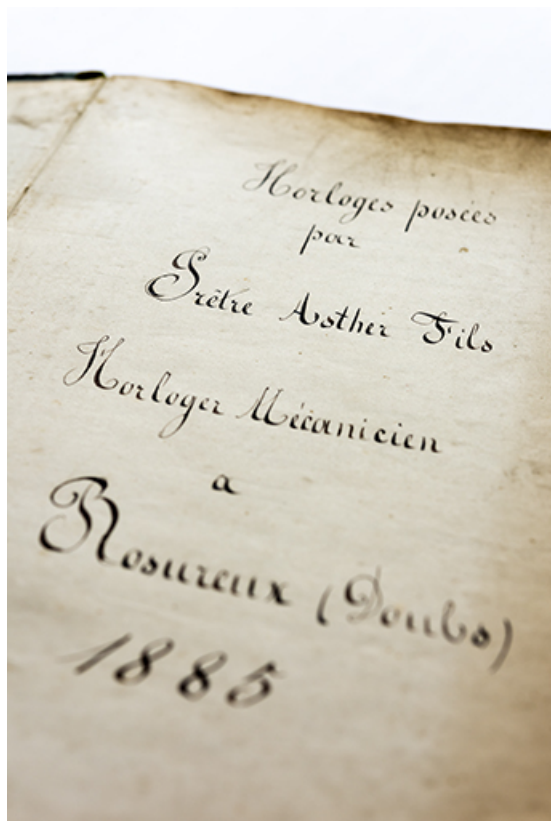 Horloges posées
par
Prêtre Asther Fils
Horloger Mécanicien
a
Rosureux (Doubs)
1885